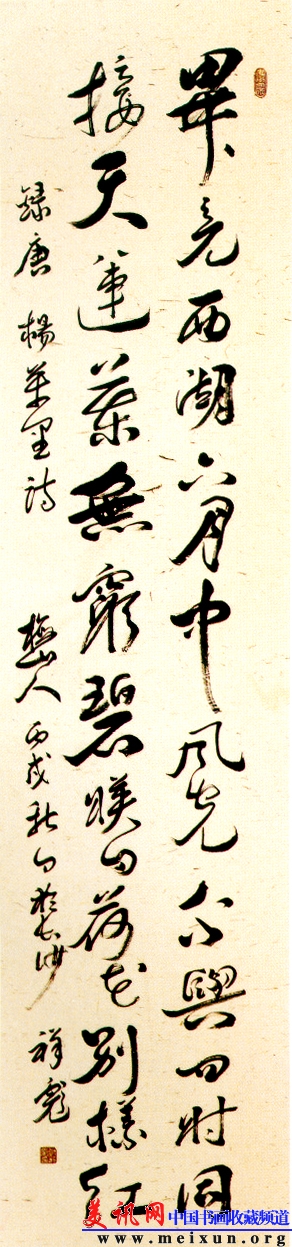 畢竟西湖六月中風光不與四時同
接天蓮葉無窮碧暎日荷花別樣紅
錄唐楊萬里詩 梅山人丙戌秋日於長沙 祥彪
美讯网 中国书画收藏频道
www.meixun.org